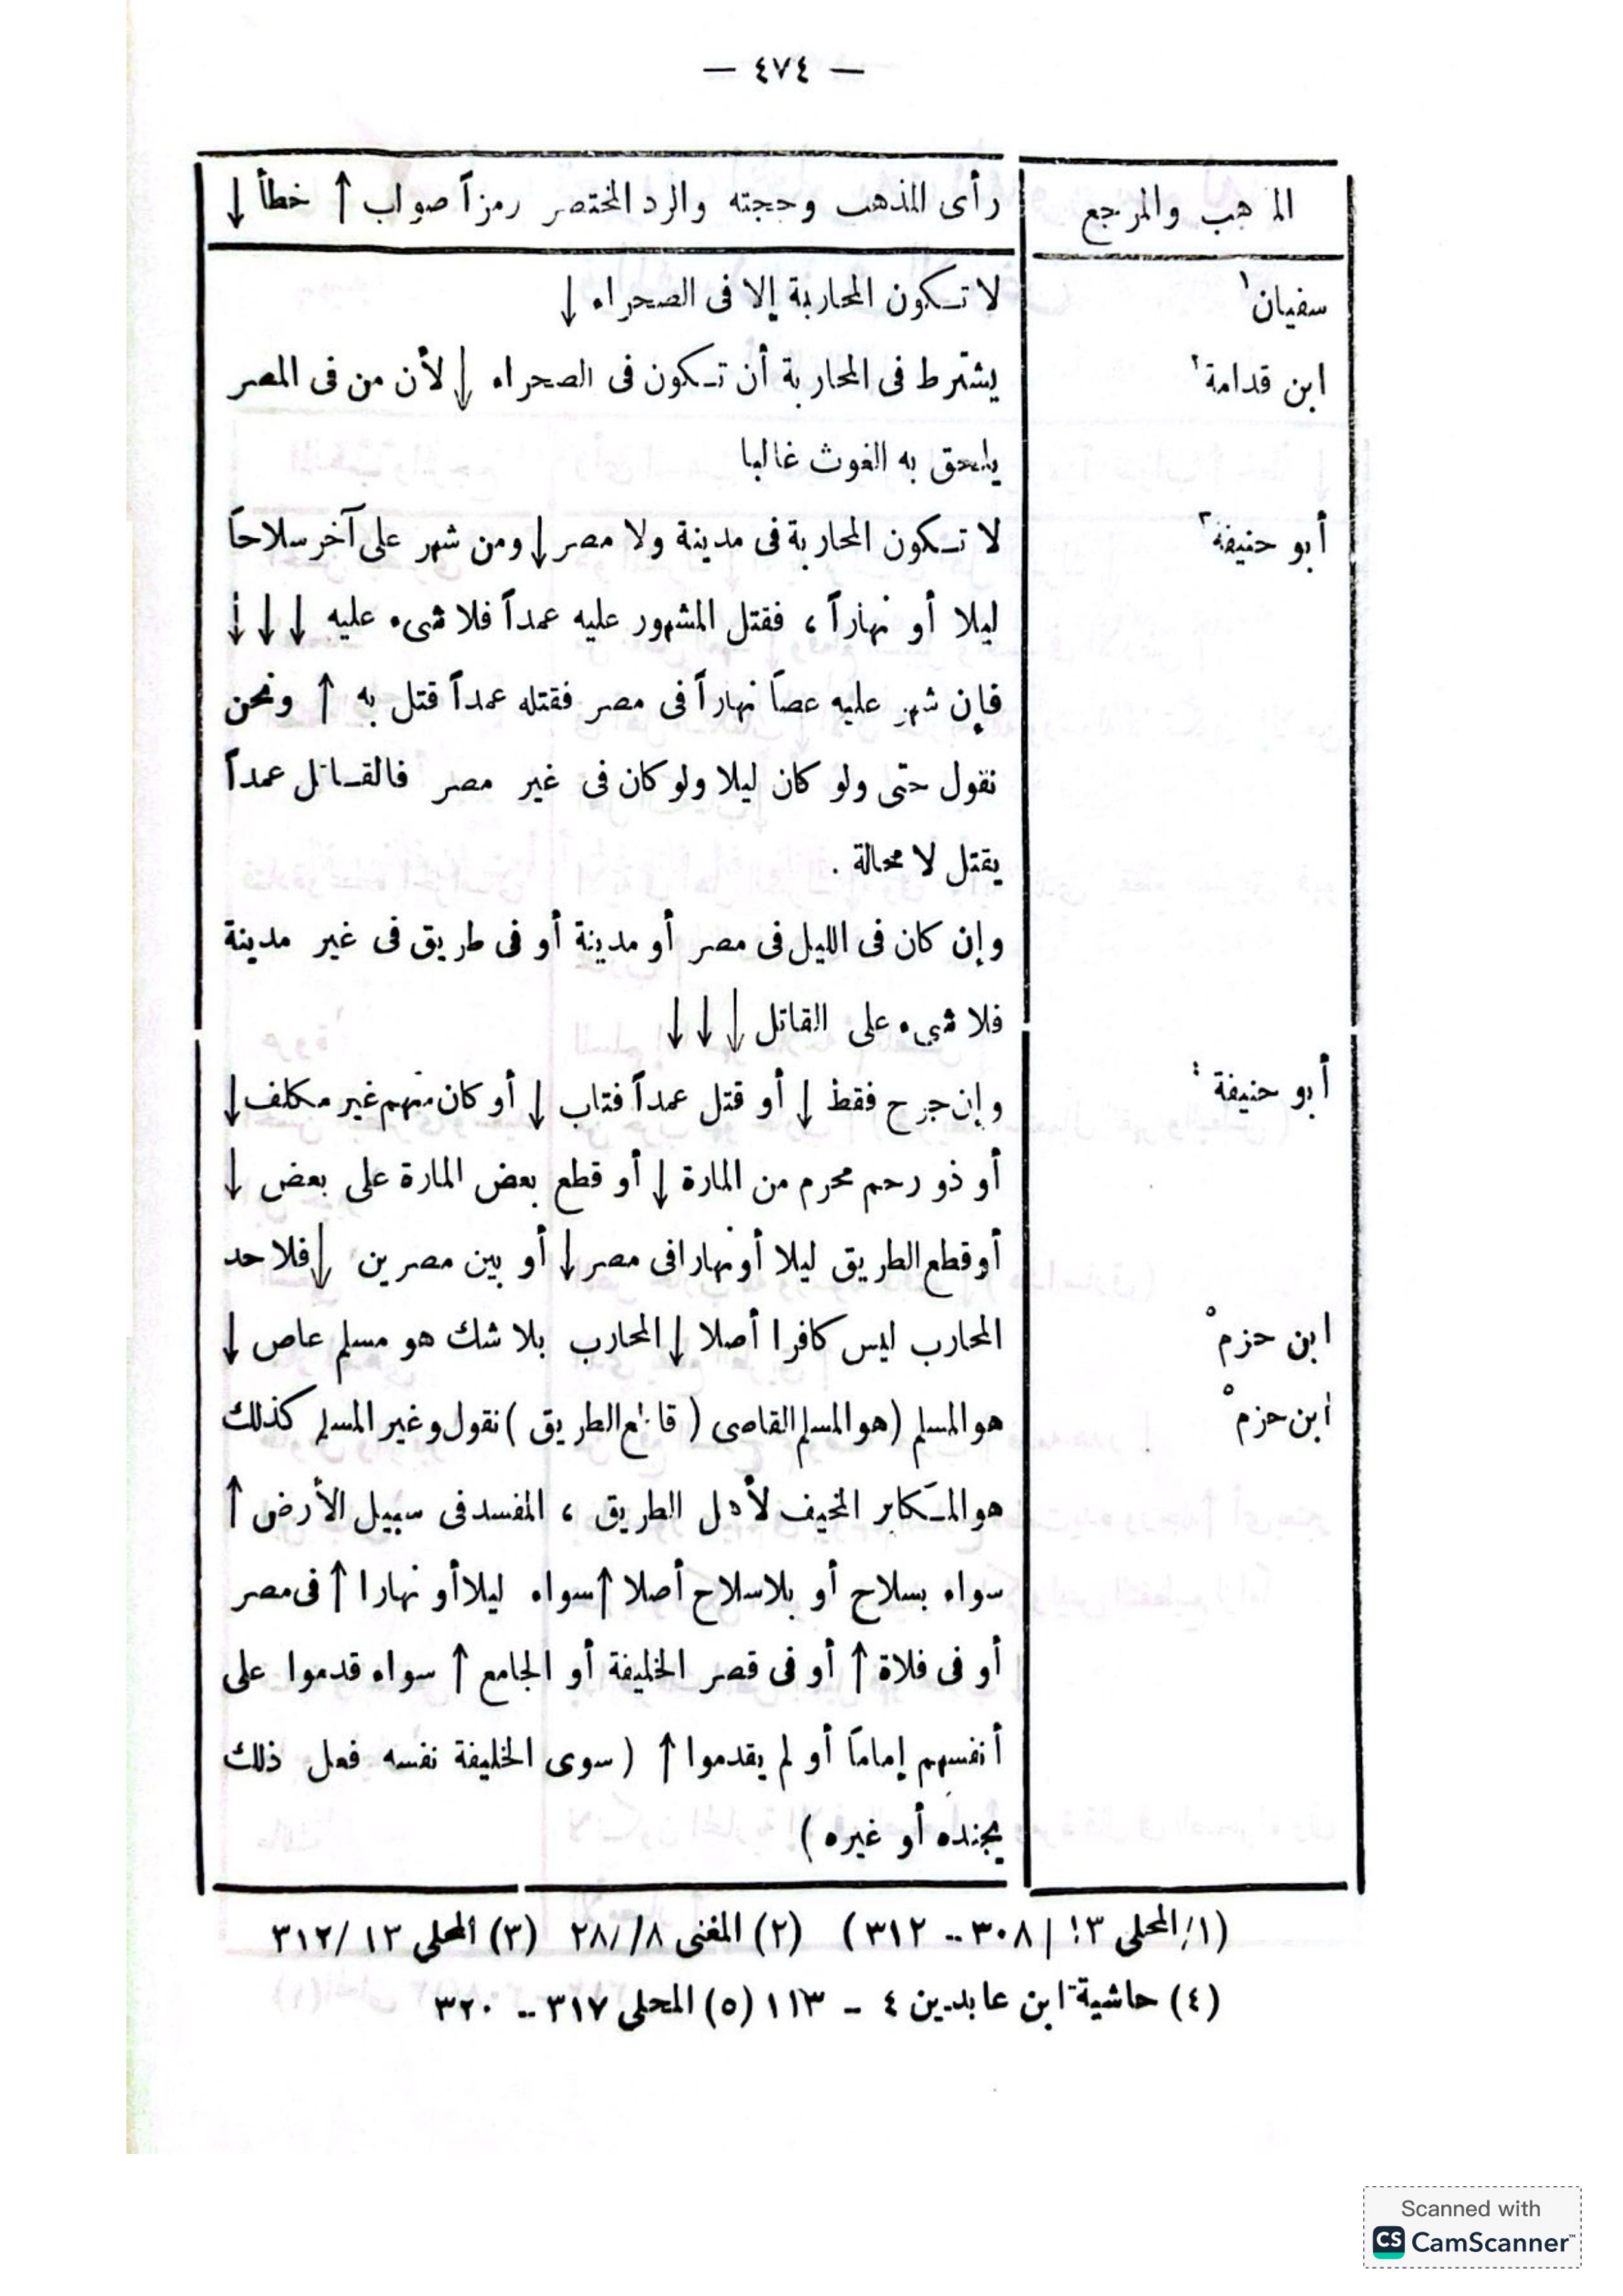 — ٤٧٤ —
المذهب والمرجع
رأى المذهب وحجته والرد المختصر رمزاً صواب ↑ خطأ ↓
سفيان١
لا تـكون المحاربة إلا فى الصحراء ↓
ابن قدامة٢
يشترط فى المحاربة أن تـكون فى الصحراء ↓ لأن من فى المصر
يلحق به الغوث غالبا
أبو حنيفة٣
لا تـكون المحاربة فى مدينة ولا مصر ↓ ومن شهر على آخر سلاحاً
ليلا أو نهاراً ، فقتل المشهور عليه عمداً فلا شىء عليه ↓ ↓ ↓
فإن شهر عليه عصاً نهاراً فى مصر فقتله عمداً قتل به ↑ ونحن
نقول حتى ولو كان ليلا ولو كان فى غير مصر فالقـاتل عمداً
يقتل لا محالة .
وإن كان فى الليل فى مصر أو مدينة أو فى طريق فى غير مدينة
فلا شىء على القاتل ↓ ↓ ↓
أبو حنيفة ٤
وإن جرح فقط ↓ أو قتل عمداً فتاب ↓ أو كان منهم غير مكلف ↓
أو ذو رحم محرم من المارة ↓ أو قطع بعض المارة على بعض ↓
أو قطع الطريق ليلا أو نهارا فى مصر ↓ أو بين مصرين ↓ فلا حد
ابن حزم٥
المحارب ليس كافرا أصلا ↓ المحارب بلا شك هو مسلم عاص ↓
ابن حزم٥
هو المسلم (هو المسلم القاصى ( قاطع الطريق ) نقول وغير المسلم كذلك
هو المـكابر المخيف لأهل الطريق ، المفسد فى سبيل الأرض ↑
سواء بسلاح أو بلا سلاح أصلا ↑ سواء ليلا أو نهارا ↑ فى مصر
أو فى فلاة ↑ أو فى قصر الخليفة أو الجامع ↑ سواء قدموا على
أنفسهم إماماً أو لم يقدموا ↑ ( سوى الخليفة نفسه فعل ذلك
بجنده أو غيره )
(١/ المحلى ١٣ / ٣٠٨ -- ٣١٢ ) (٢) المغنى ٨//٢٨ (٣) المحلى ١٣ /٣١٢
(٤) حاشية ابن عابدين ٤ - ١١٣ (٥) المحلى ٣١٧ -- ٣٢٠
Scanned with
CS CamScanner